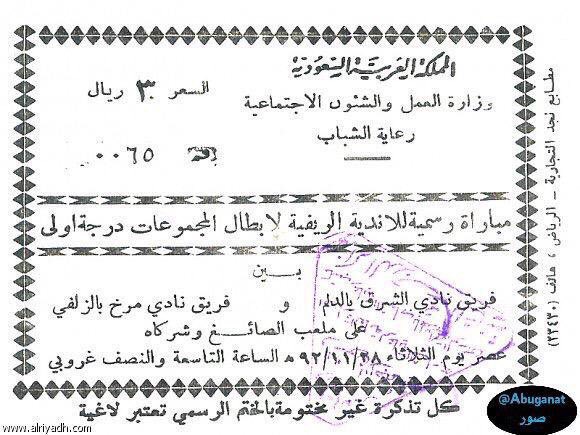 المملكة العربية السعودية
وزارة العمل والشئون الاجتماعية
رعاية الشباب
السعر ٣ ريال
رقم ٠٠٦٥
مباراة رسمية للاندية الريفية لابطال المجموعات درجة اولى
بين
فريق نادي الشرق بالدلم و فريق نادي مرخ بالزلفي
على ملعب الصائغ وشركاه
عصر يوم الثلاثاء ٩٢/١٠١/٢٨ هـ الساعة التاسعة والنصف غروبي
كل تذكرة غير مختومة بالختم الرسمي تعتبر لاغية
مطابع نجد التجارية - الرياض ، هاتف (٢٣٤٣٠)
www.alriyadh.com
@Abuganat
صور